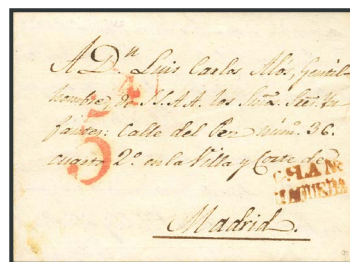 A Dn. Luis Carlos Alós, Gentil
hombre de SS.AA. los
fantes: Calle del Pez núm. 36.
cuarto 2º. en la Villa y Corte de
Madrid.
5